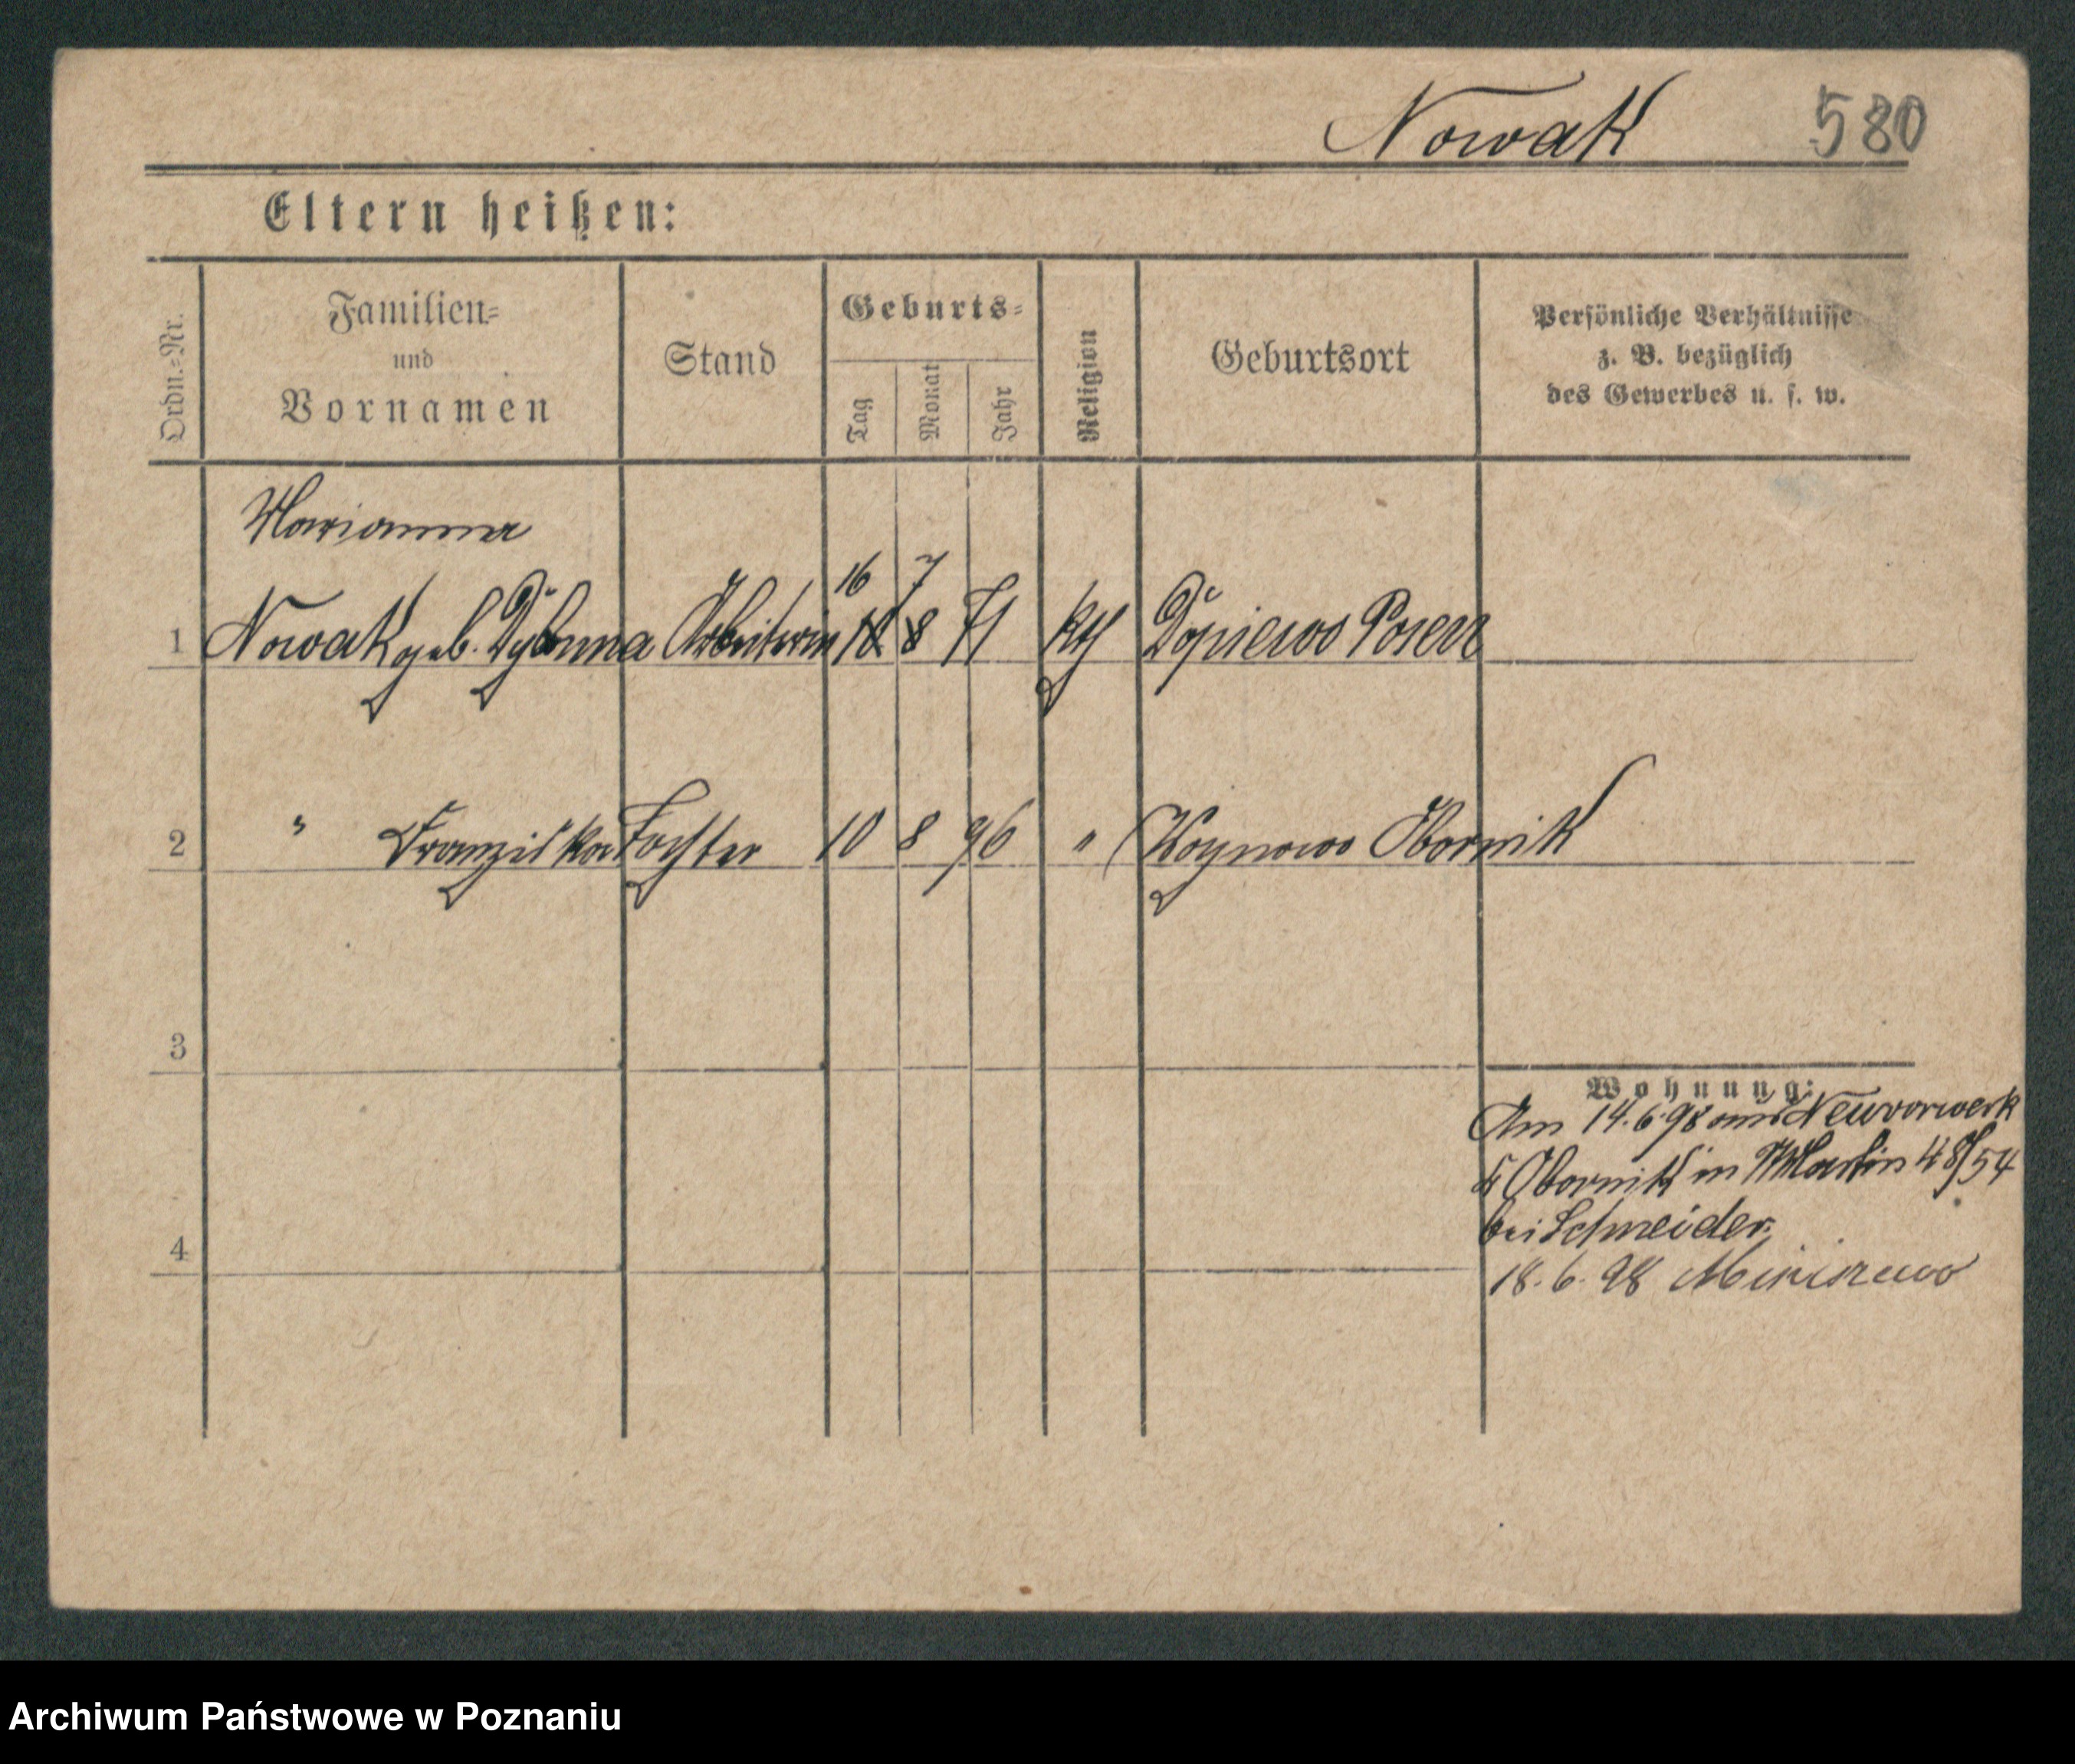 Nowak 580
Eltern heißen:
Ordn.-Nr. Familien- und Vornamen Stand Geburts- Tag Monat Jahr Religion Geburtsort Persönliche Verhältnisse z. B. bezüglich des Gewerbes u. s. w.
Marianna
16 7
1 Nowak geb. Arbeiterin 18 8 71 kth Dopiewo Posen
2 " Franziska Tochter 10 8 96 " Obornik
3
Wohnung:
Am 14.6.98 aus Neuvorwerk
Obornik in Martin 48/54
bei Schneider.
4
18.6.98
Archiwum Państwowe w Poznaniu